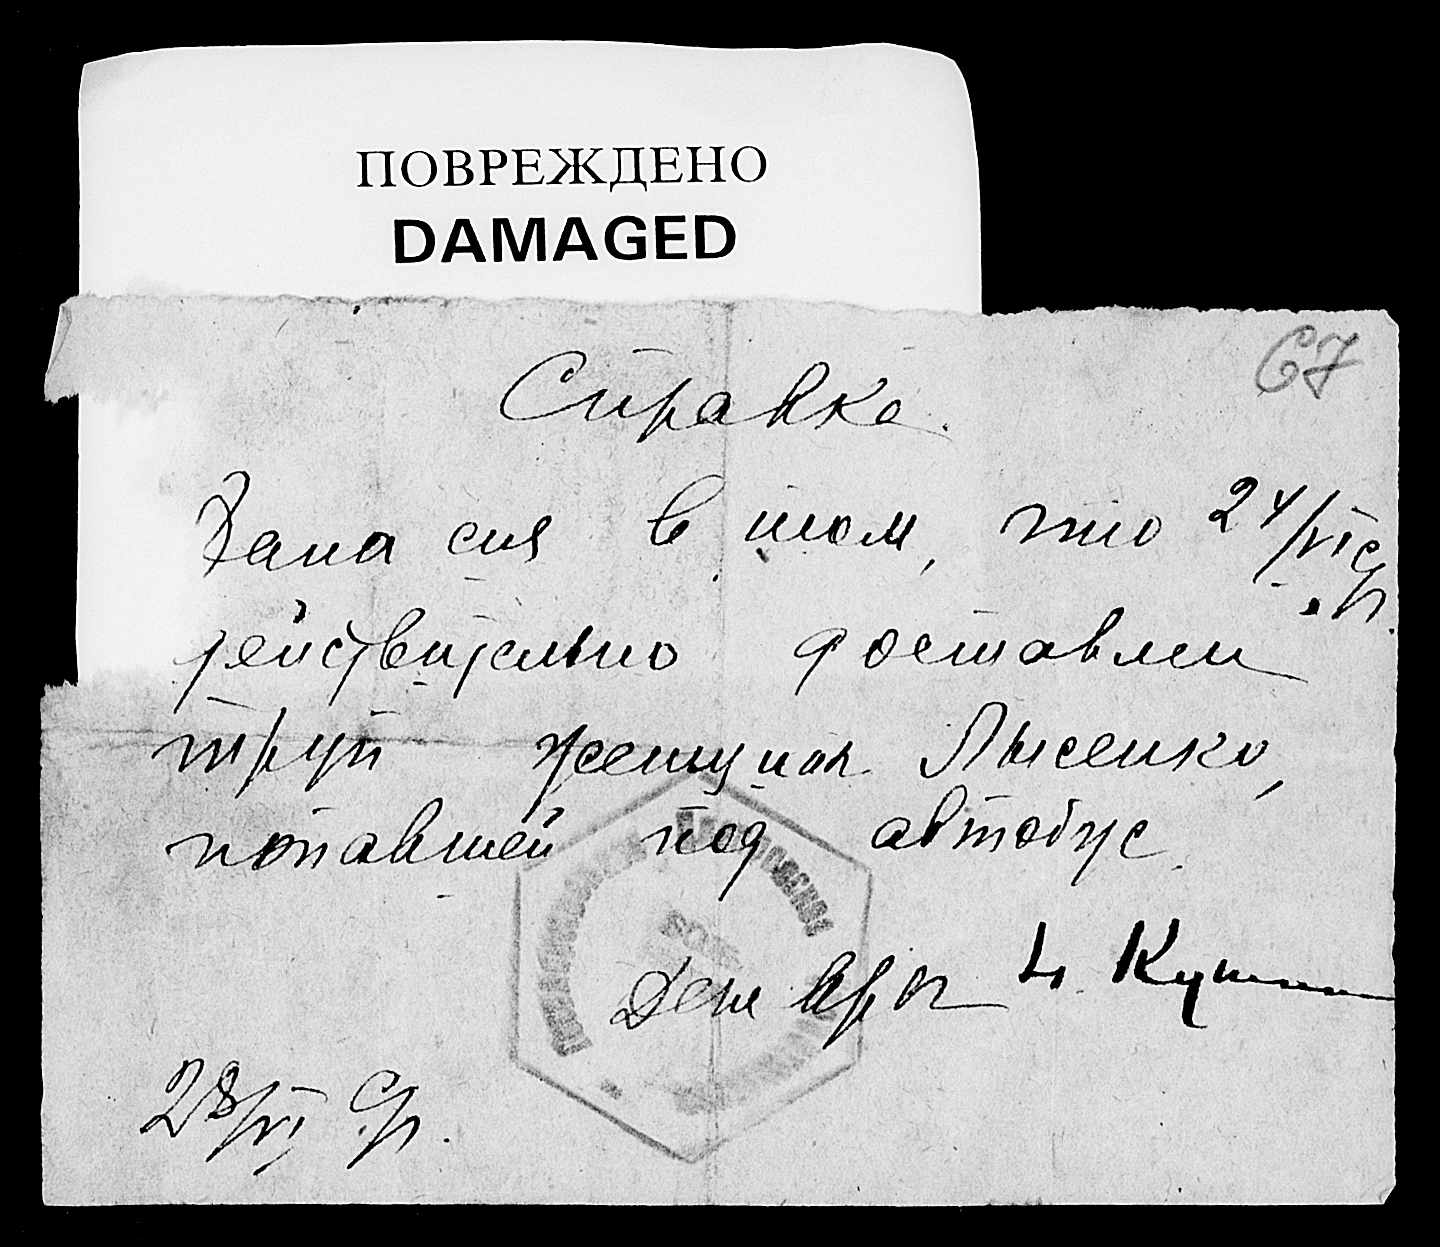 ПОВРЕЖДЕНО
DAMAGED
67
Справка.
Дана сия в том, что 24/VI с/г.
действительно доставлен
труп женщины Лысенко,
попавшей под автобус.
Деж врач
28/VI с/г.